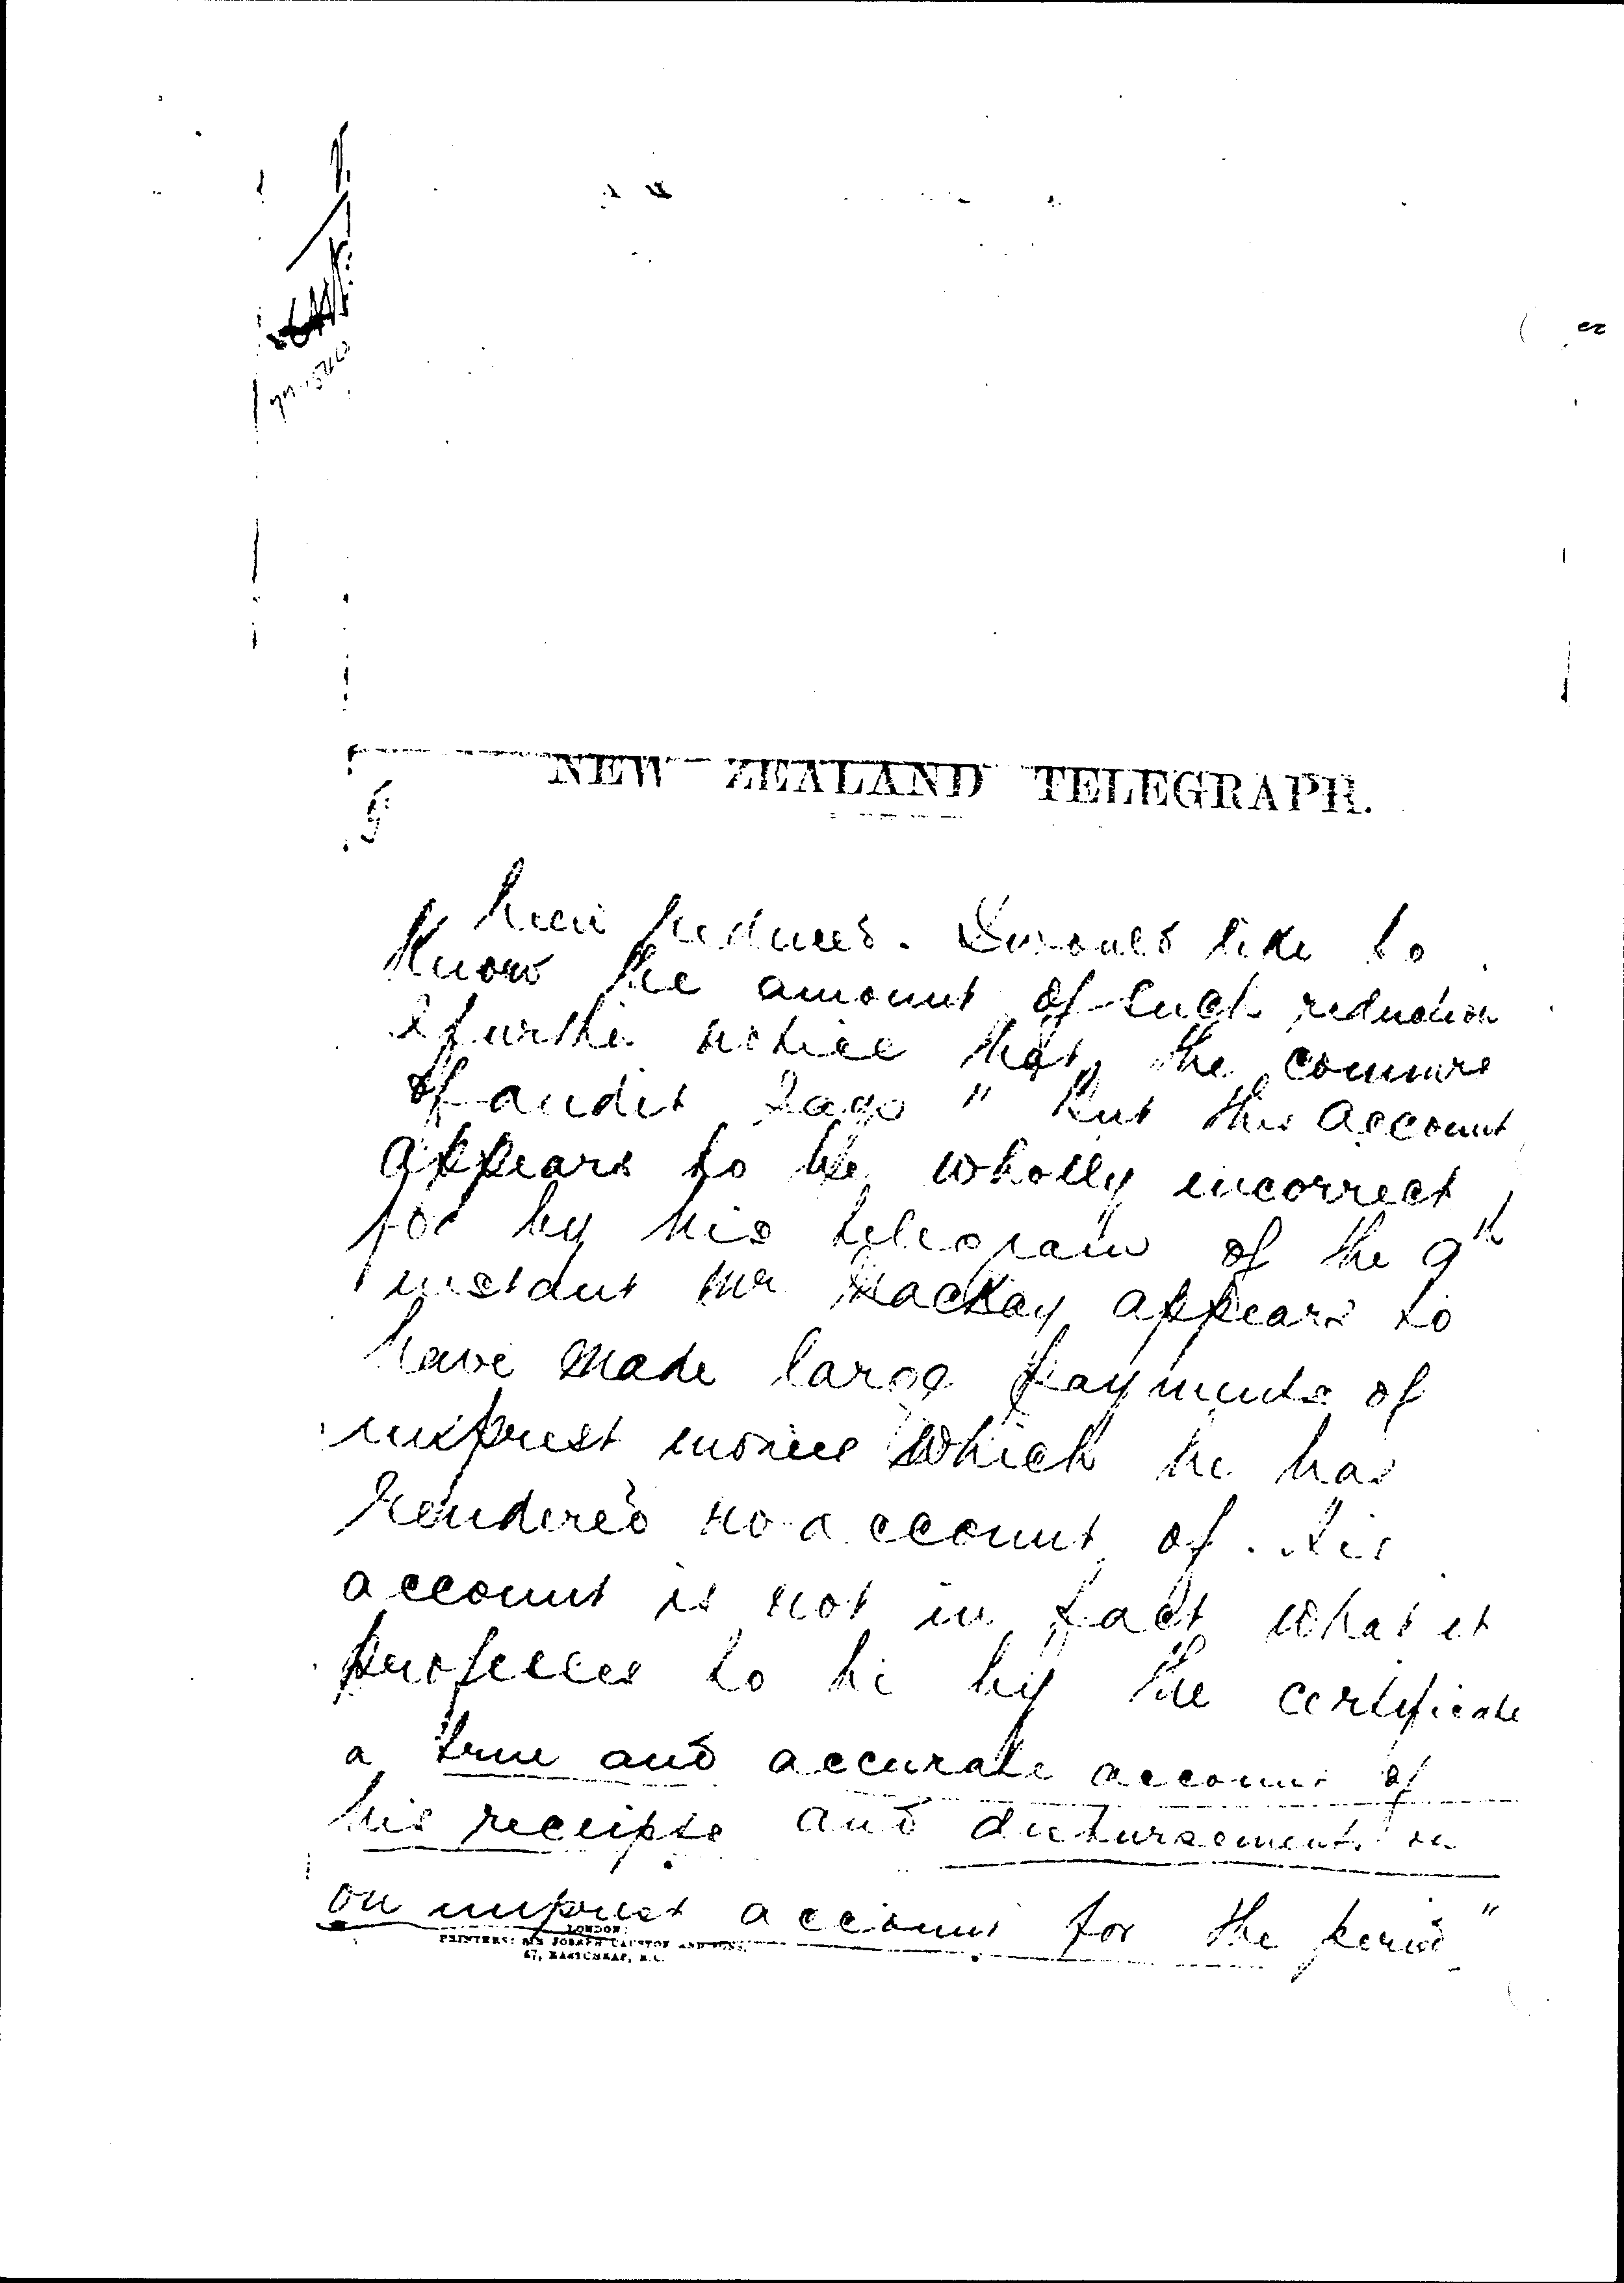 NEW ZEALAND TELEGRAPH.
been reduced. I would like to
Know the amount of such reduction
I further notice that the commrs
of audit says " But this account
appears to be wholly incorrect
for by his telegram of the 9th
instant Mr Mackay appears to
have made large payments of
imprest monies which he has
rendered no account of. His
account is not in fact what it
professes to be by the certificate
a true and accurate account of
his receipts and disbursements in
on imprest account for the period "
LONDON:
PRINTERS: SIR JOSEPH CAUSTON AND SONS,
47, EASTCHEAP, E.C.